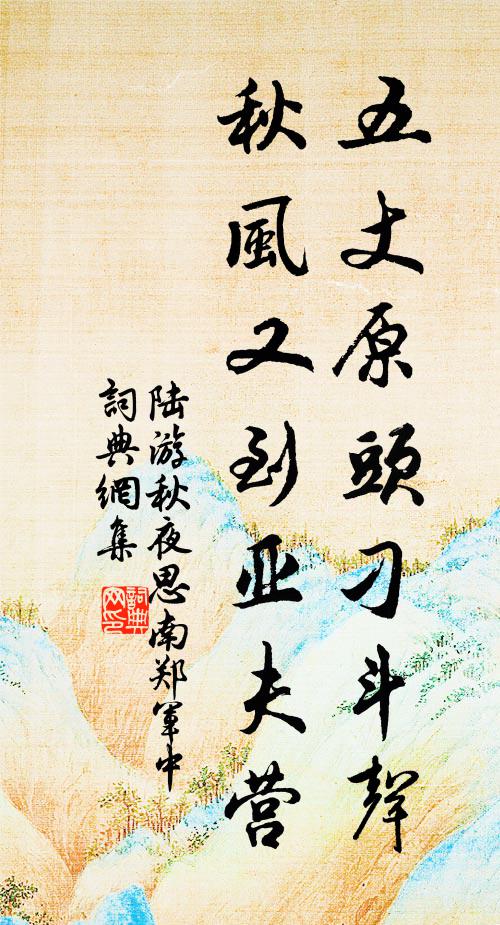 五丈原頭刁斗聲
秋風又到亚夫营
陆游秋夜思南郑军中
詞典網集
詞典
网印